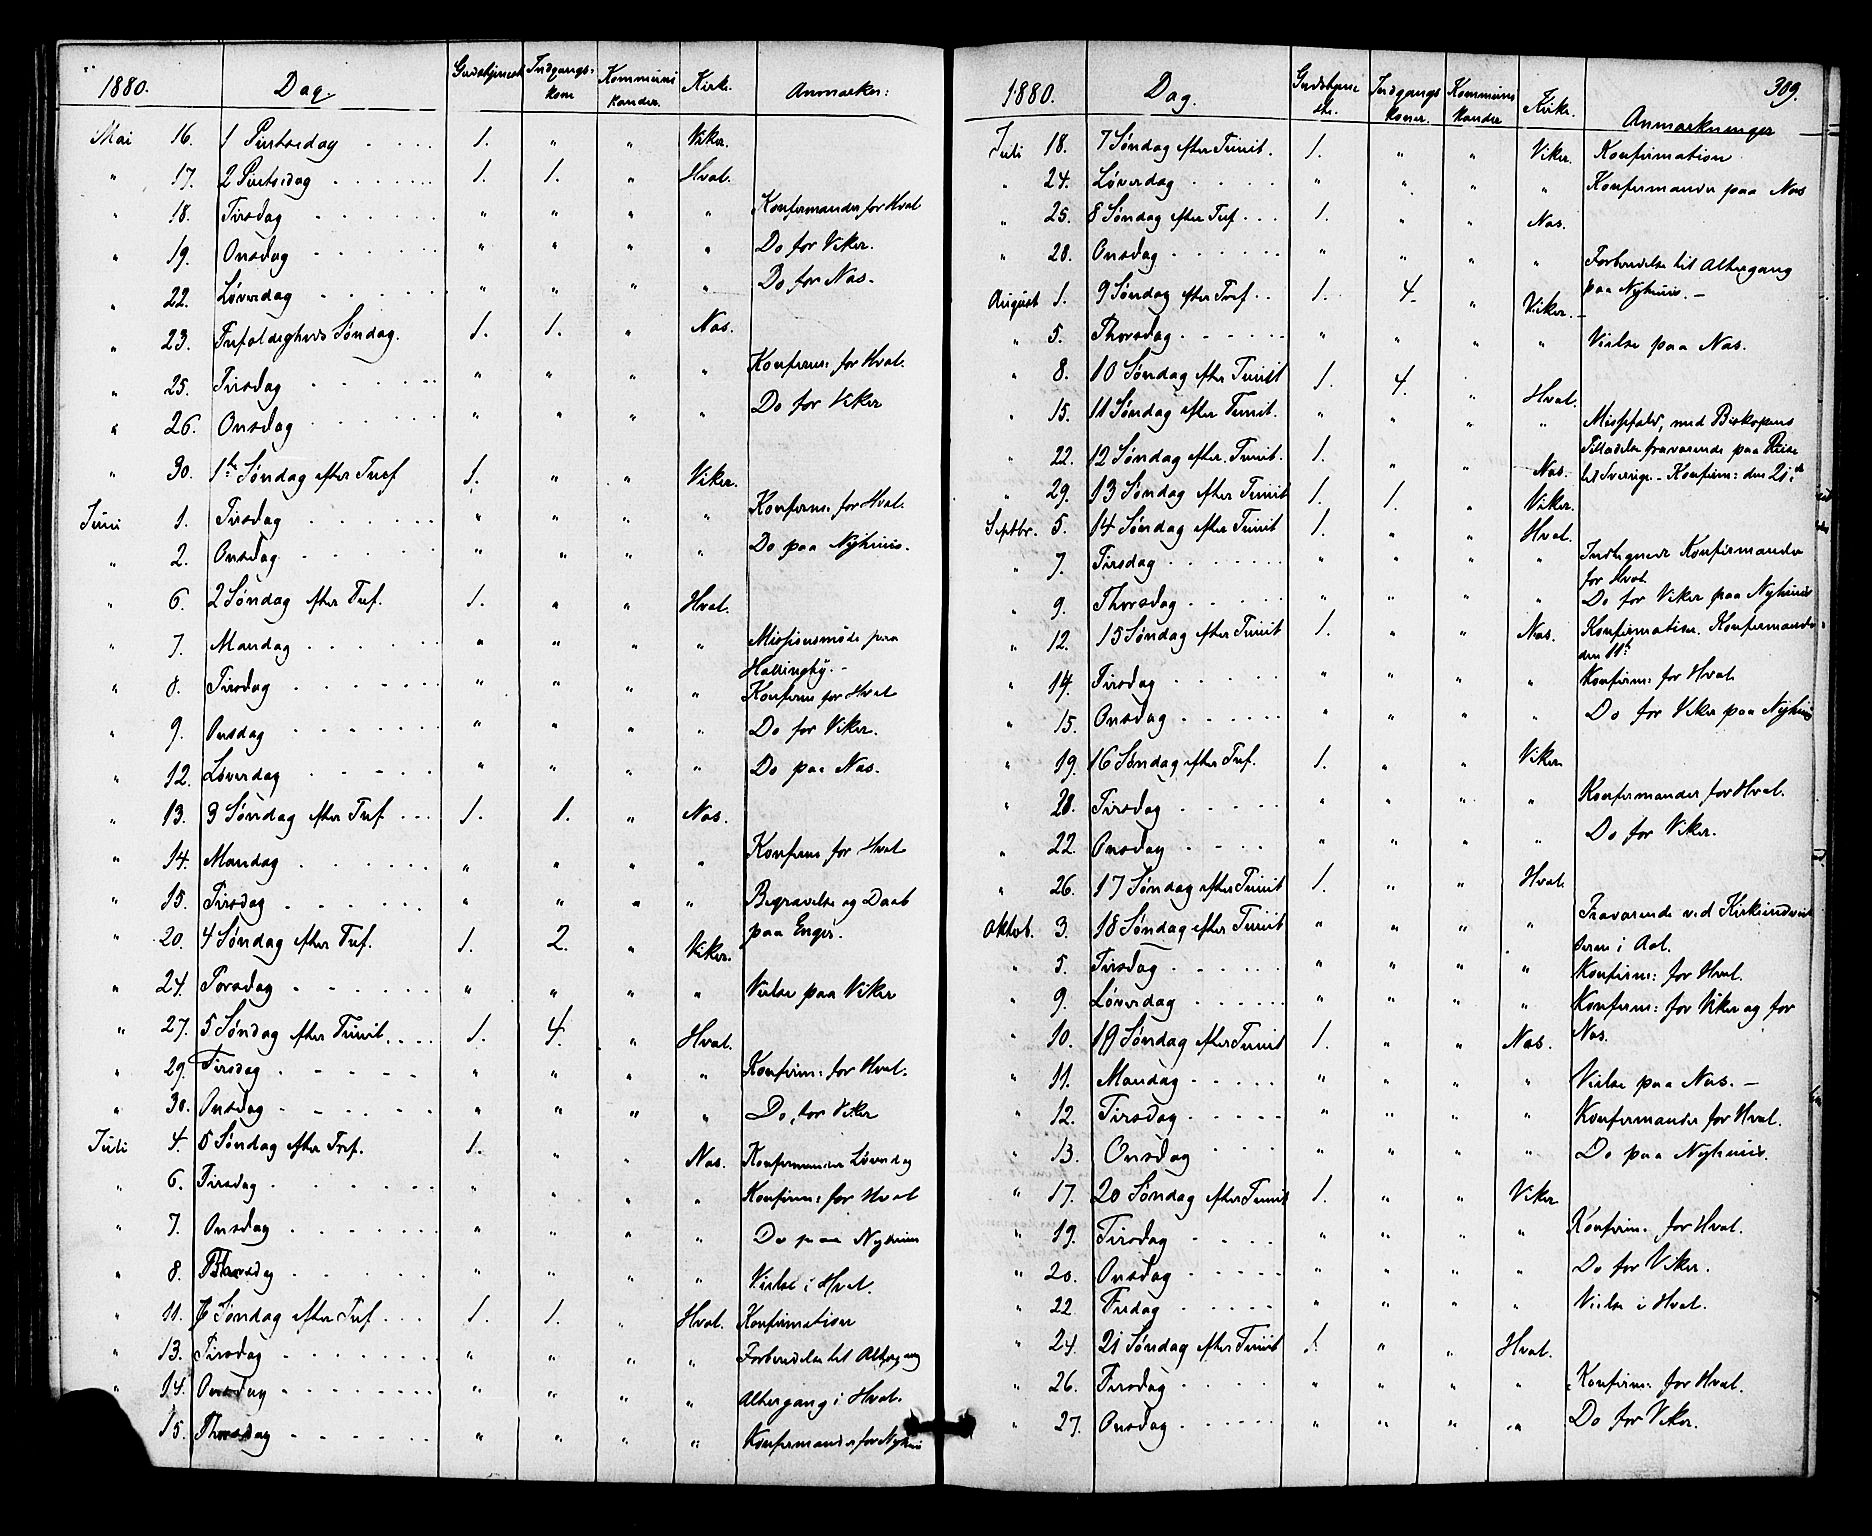 1880. Dag. Gudstjeneste Indgangs- Kommuni- Kirke. Anmærker:
kone kander.
Mai 16. 1 Pintsedag . . . . 1. " " Viker.
" 17. 2 Pintsedag . . . . . . 1. 1. " Hval.
" 18. Tirsdag . . . . . . " " " " Konfirmander for Hval
" 19. Onsdag . . . . . . " " " " Do for Viker.
" 22. Løverdag . . . . . " " " " Do for Næs.
" 23. Trefoldigheds Søndag. 1. 1. " Næs.
" 25. Tirsdag . . . . . . " " " " Konfirm: for Hval.
" 26. Onsdag . . . . . . " " " " Do for Viker
" 30. 1ste Søndag efter Tref 1. " " Viker.
Juni 1. Tirsdag . . . . . . " " " " Konfirm: for Hval.
" 2. Onsdag . . . . . . " " " " Do paa Nyhuus.
" 6. 2 Søndag efter Tref. 1. " " Hval.
" 7. Mandag . . . . . . " " " " Missionsmøde paa
Hallingby. -
" 8. Tirsdag . . . . . . " " " " Konfirm for Hval
" 9. Onsdag . . . . . . " " " " Do for Viker.
" 12. Løverdag . . . . . " " " " Do paa Næs.
" 13. 3 Søndag efter Tref . . . 1. 1. " Næs.
" 14. Mandag . . . . . . " " " " Konfirm for Hval
" 15. Tirsdag . . . . . . " " " " Begravelse og Daab
paa Enger.
" 20. 4 Søndag efter Tref. 1. 2. " Viker.
" 24. Torsdag . . . . . . " " " " Vielse paa Viker
" 27. 5 Søndag efter Trinit. . . . 1. 4. " Hval.
" 29. Tirsdag . . . . . " " " " Konfirm: for Hval.
" 30. Onsdag . . . . . . " " " " Do. for Viker
Juli 4. 6 Søndag efter Tref. 1. " " Næs. Konfirmander Løverdag
" 6. Tirsdag . . . . . . " " " " Konfirm: for Hval
" 7. Onsdag . . . . . . " " " " Do paa Nyhuus
" 8. Thorsdag . . . . . " " " " Vielse i Hval.
" 11. 6 Søndag efter Tref . . . 1. 1. " Hval. Konfirmation
" 13. Tirsdag . . . . . . " " " " Forberedelse til Altergang
" 14. Onsdag . . . . . . . " " " " Altergang i Hval.
15. Thorsdag . . . . . . " " " " Konfirmander for Nyhuus
309.
1880. Dag. Gudstjene- Indgangs Kommuni Kirke. Anmærkninger
ste. koner. kander
Juli 18. 7 Søndag efter Trinit. 1. " " Viker. Konfirmation
" 24. Løverdag . . . . . " " " " Konfirmander paa Næs
" 25. 8 Søndag efter Tref . . . 1. " " Næs.
" 28. Onsdag . . . . . . " " " " Forberedelse til Altergang
paa Nyhuus. -
August 1. 9 Søndag efter Tref . . 1. 4. " Viker.
" 5. Thorsdag . . . . . . " " " " Vielse paa Næs.
" 8. 10 Søndag efter Trinit 1. 4. " Hval.
" 15. 11 Søndag efter Trinit. " " " " Messefald, med Biskopens
Tilladelse fraværende paa Reise
til Sverige. - Konfirm: den 21de
" 22. 12 Søndag efter Trinit. 1. " " Næs.
" 29. 13 Søndag efter Trinit 1. 1. " Viker.
Septbr. 5. 14 Søndag efter Trinit 1. " " Hval.
" 7. Tirsdag . . . . . . . " " " " Indtegnede Konfirmander
for Hval.
" 9. Thorsdag . . . . . " " " " Do for Viker paa Nyhuus
" 12. 15 Søndag efter Trinit 1. " " Næs. Konfirmation. Konfirmander
den 11te
" 14. Tirsdag . . . . . " " " " Konfirm: for Hval.
" 15. Onsdag . . . . . . " " " " Do for Viker paa Nyhuus
" 19. 16 Søndag efter Tref. 1. " " Viker
" 28. Tirsdag . . . . . . " " " " Konfirmander for Hval.
" 22. Onsdag . . . . " " " " Do for Viker.
" 26. 17 Søndag efter Trinit 1. " " Hval.
Oktob. 3. 18 Søndag efter Trinit " " " " Fraværende ved Kirkeindviel-
sen i Aal.
" 5. Tirsdag . . . . . . " " " " Konfirm: for Hval.
" 9. Løverdag . . . . . . " " " " Konfirm: for Viker og for
Næs.
" 10. 19 Søndag efter Trinit 1. " " Næs.
" 11. Mandag . . . . . " " " " Vielse paa Næs. -
" 12. Tirsdag . . . . . " " " " Konfirmander for Hval.
" 13. Onsdag . . . . " " " " Do paa Nyhuus.
" 17. 20 Søndag efter Trinit 1. " " Viker
" 19. Tirsdag . . . . " " " " Konfirm. for Hval.
" 20. Onsdag . . . . . " " " " Do for Viker.
" 22. Fredag . . . . . " " " " Vielse i Hval.
" 24. 21 Søndag efter Trinit 1. " " Hval.
" 26. Tirsdag . . . . " " " " Konfirm: for Hval.
" 27. Onsdag . . . . . " " " " Do for Viker.